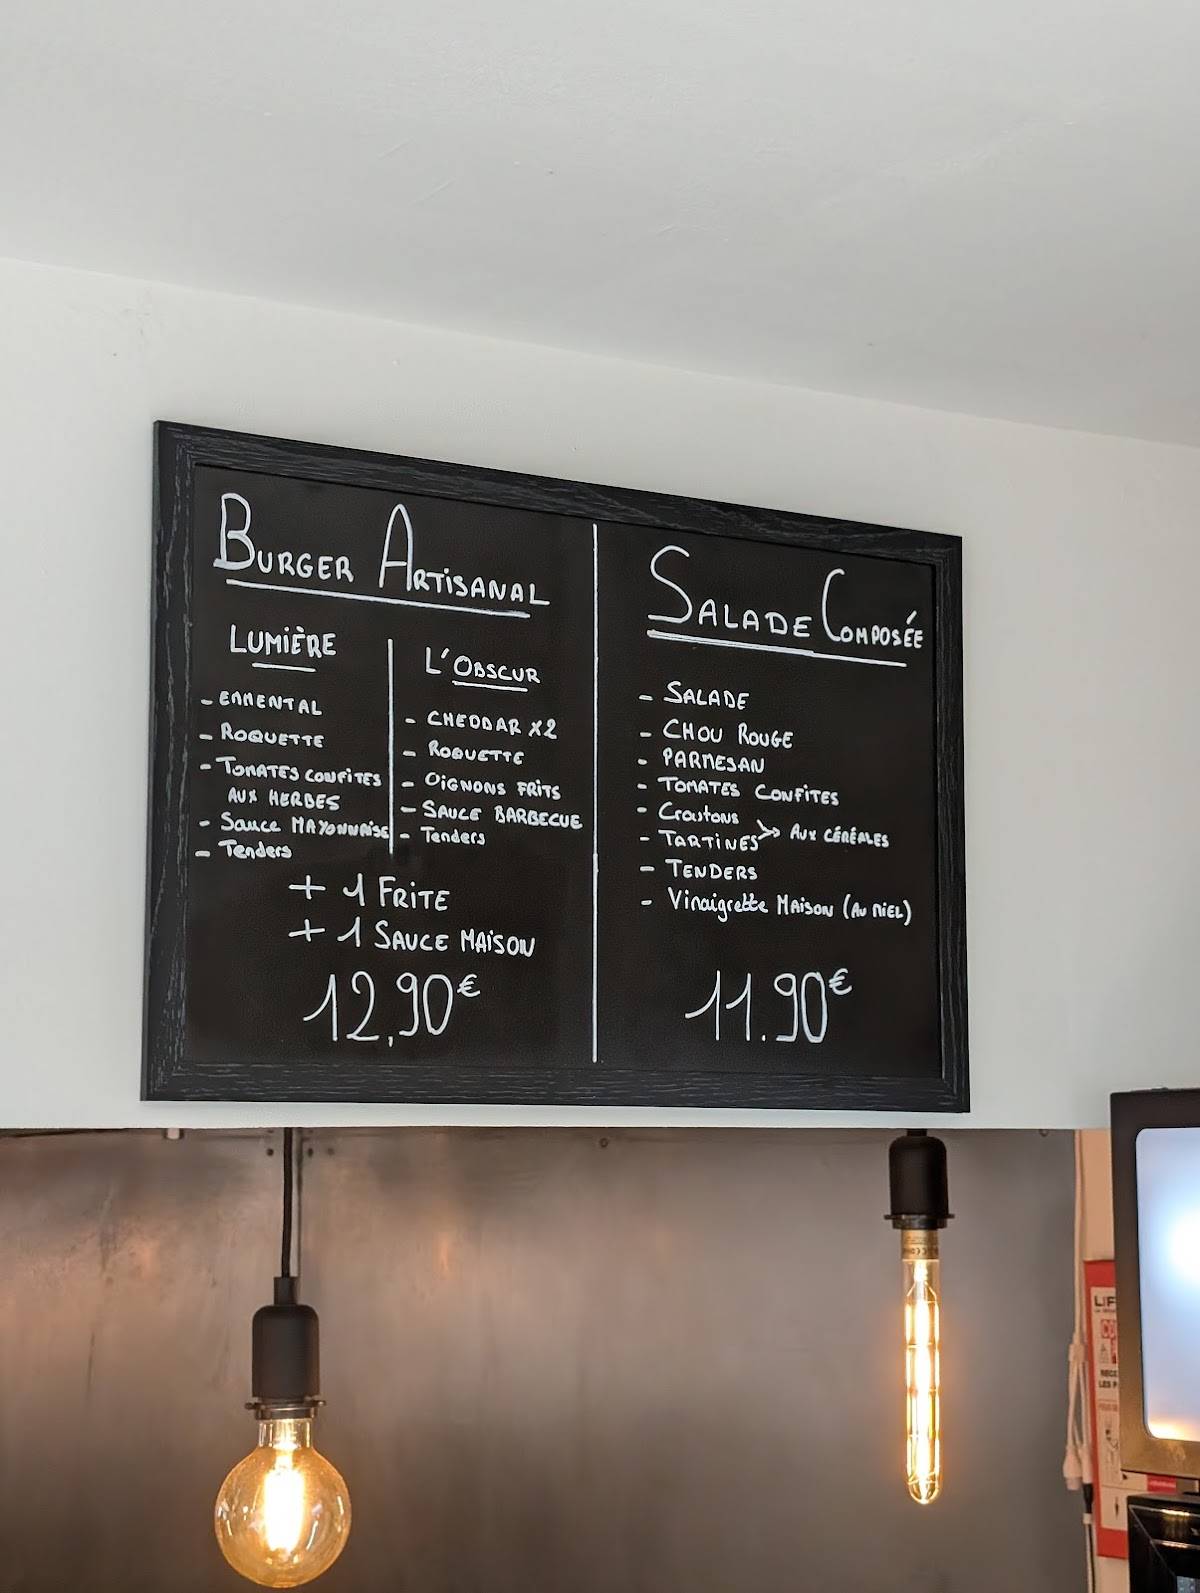 BURGER ARTISANAL
LUMIÈRE
- EMMENTAL
- ROQUETTE
- TOMATES CONFITES
AUX HERBES
- Sauce MAYONNAISE
- Tenders
L'OBSCUR
- CHEDDAR X2
- ROQUETTE
- OIGNONS FRITS
- SAUCE BARBECUE
- Tenders
+ 1 FRITE
+ 1 SAUCE MAISON
12,90€
SALADE COMPOSÉE
- SALADE
- CHOU ROUGE
- PARMESAN
- TOMATES CONFITES
- Croutons
- TARTINES > AUX CÉRÉALES
- TENDERS
- Vinaigrette MAISON (AU MIEL)
11.90€